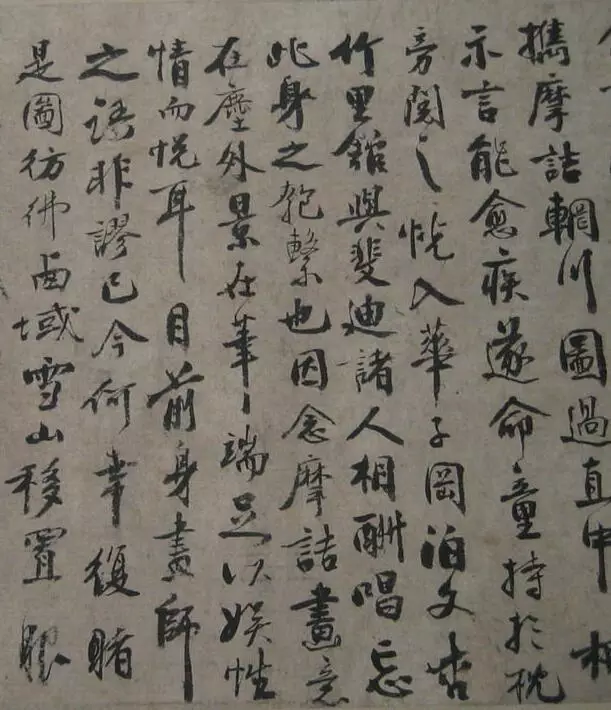 攜摩詰輞川圖過直中相
示言能愈疾遂命童持於枕
旁閱之恍入華子岡泊文杏
竹里館與斐迪諸人相酬唱忘
此身之匏繫也因念摩詰畫意
在塵外景在筆端足以娛性
情而悅耳目前身畫師
之語非謬已今何幸復睹
是圖彷彿西域雪山移置眼